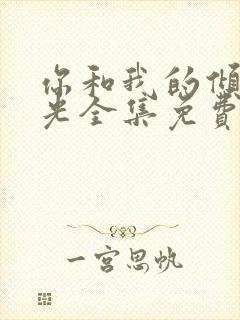 你和我的倾
光全集免费
一宫思帆